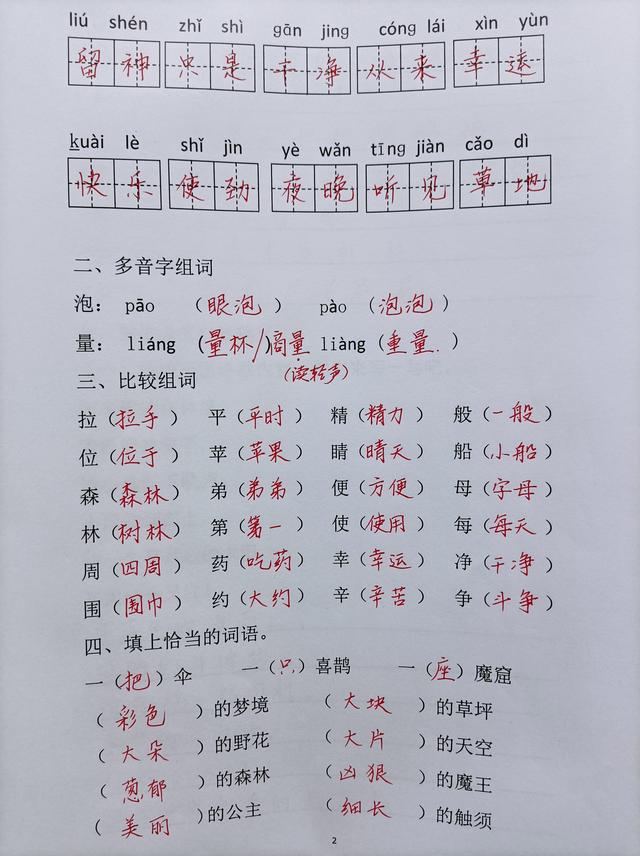 liú shén zhǐ shì gān jìng cóng lái xìn yùn
留神 只是 干净 从来 幸运
kuài lè shǐ jìn yè wǎn tīng jiàn cǎo dì
快乐 使劲 夜晚 听见 草地
二、多音字组词
泡： pāo （眼泡） pào （泡泡）
量： liáng （量杯/商量 liàng （重量.）
（读轻声）
三、比较组词
拉（拉手） 平（平时） 精（精力） 般（一般）
位（位于） 苹（苹果） 睛（晴天） 船（小船）
森（森林） 弟（弟弟） 便（方便） 母（字母）
林（树林） 第（第一） 使（使用） 每（每天）
周（四周） 药（吃药） 幸（幸运） 净（干净）
围（围巾） 约（大约） 辛（辛苦） 争（斗争）
四、填上恰当的词语。
一（把）伞 一（只）喜鹊 一（座）魔窟
（彩色）的梦境 （大块）的草坪
（大朵）的野花 （大片）的天空
（葱郁）的森林 （凶狠）的魔王
（美丽）的公主 （细长）的触须
2